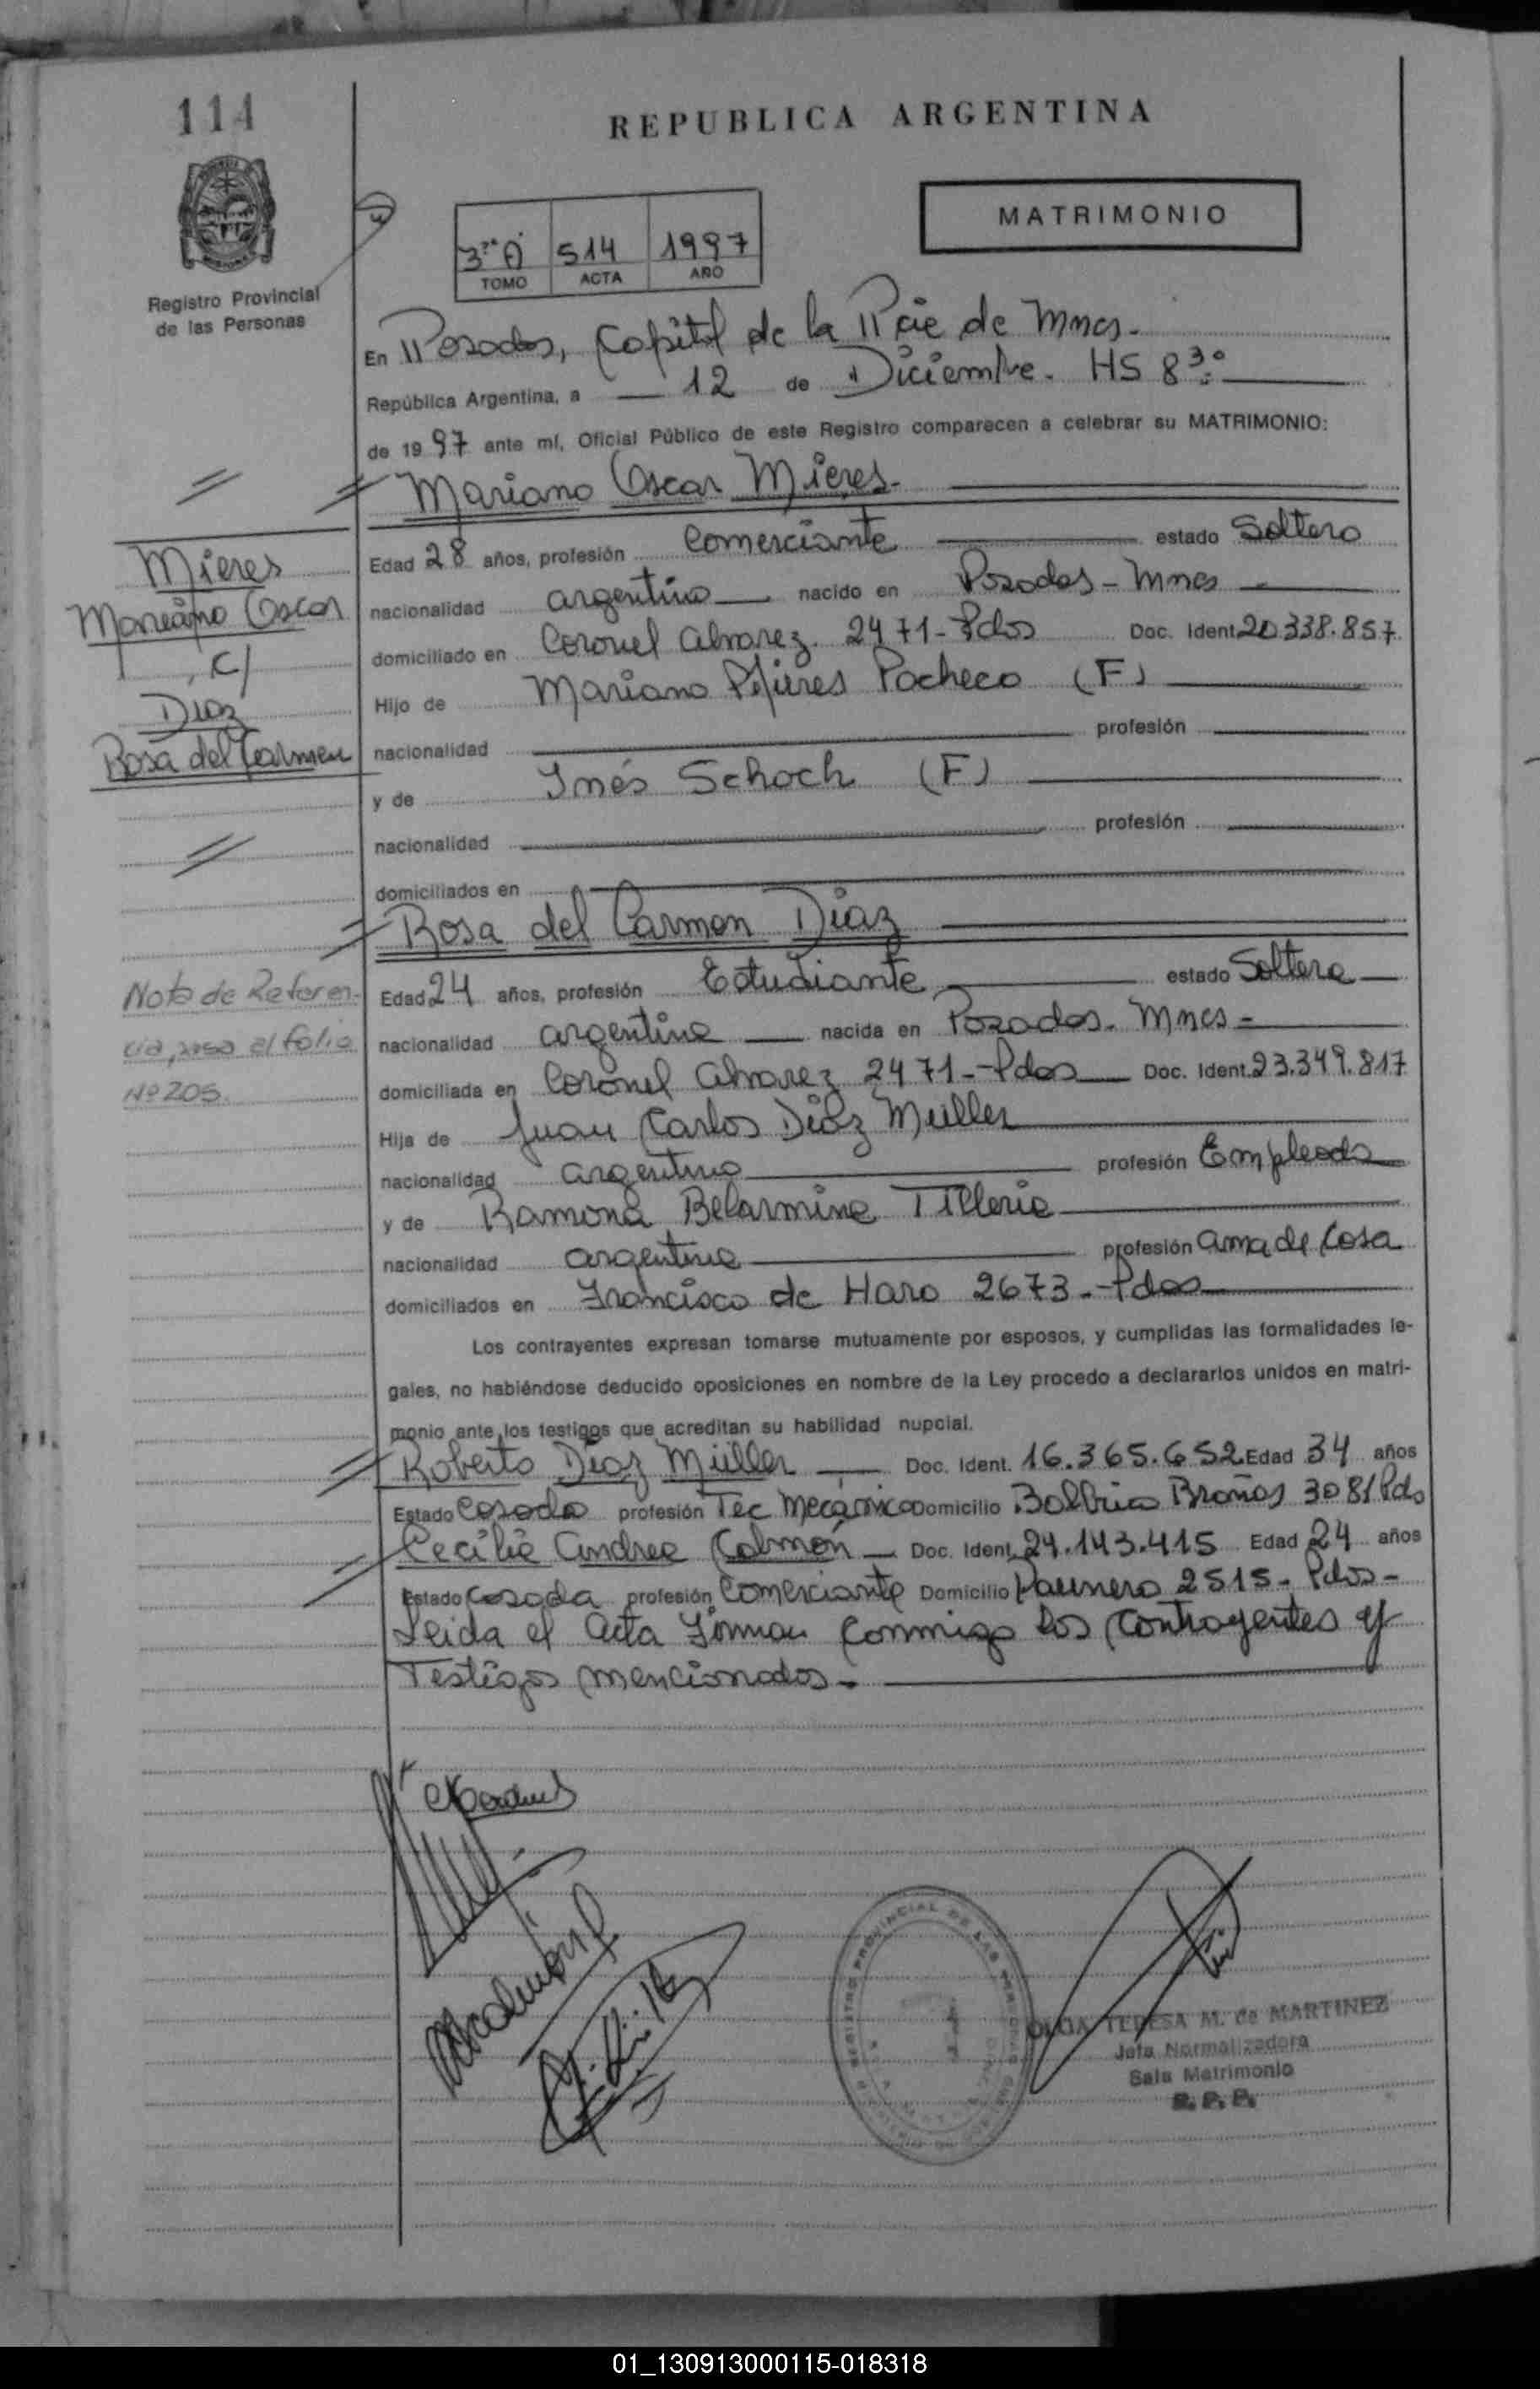 114
REPUBLICA ARGENTINA
Registro Provincial
de las Personas
3ro A 514 1997
TOMO ACTA AÑO
MATRIMONIO
En Posadas, Capital de la Pcie de Mnes.
República Argentina, a 12 de Diciembre. HS 8 30
de 1997 ante mí, Oficial Público de este Registro comparecen a celebrar su MATRIMONIO:
Mariano Oscar Mieres.
Mieres
Mariano Oscar
c/
Diaz
Rosa del Carmen
Edad 28 años, profesión Comerciante estado Soltero
nacionalidad argentino nacido en Posadas - Mnes
domiciliado en Coronel Alvarez 2471 - Pdas Doc. Ident. 20.338.857.
Hijo de Mariano Mieres Pacheco (F)
nacionalidad profesión
y de Inés Schoch (F)
nacionalidad profesión
domiciliados en
Rosa del Carmen Diaz
Nota de Referen-
cia, pasa al folio
Nº 205.
Edad 24 años, profesión Estudiante estado Soltera
nacionalidad argentina nacida en Posadas. Mnes -
domiciliada en Coronel Alvarez 2471 - Pdas Doc. Ident. 23.349.817
Hija de Juan Carlos Diaz Müller
nacionalidad argentino profesión Empleado
y de Ramona Belarmina Tilleria
nacionalidad argentina profesión ama de Casa
domiciliados en Francisco de Haro 2673 - Pdas
Los contrayentes expresan tomarse mutuamente por esposos, y cumplidas las formalidades le-
gales, no habiéndose deducido oposiciones en nombre de la Ley procedo a declararlos unidos en matri-
monio ante los testigos que acreditan su habilidad nupcial.
Roberto Diaz Müller Doc. Ident. 16.365.652 Edad 34 años
Estado Casado profesión Tec Mecánico Domicilio 3081 Pdas
Cecilia Andrea Calmón Doc. Ident. 24.143.415 Edad 24 años
Estado Casada profesión Comerciante Domicilio Paunero 2515 - Pdas -
Leida el Acta Firman Conmigo los Contrayentes y
Testigos mencionados.
REGISTRO PROVINCIAL DE LAS PERSONAS
OLGA TERESA M. de MARTINEZ
Jefa Normalizadora
Sala Matrimonio
R. P. P.
01_130913000115-018318